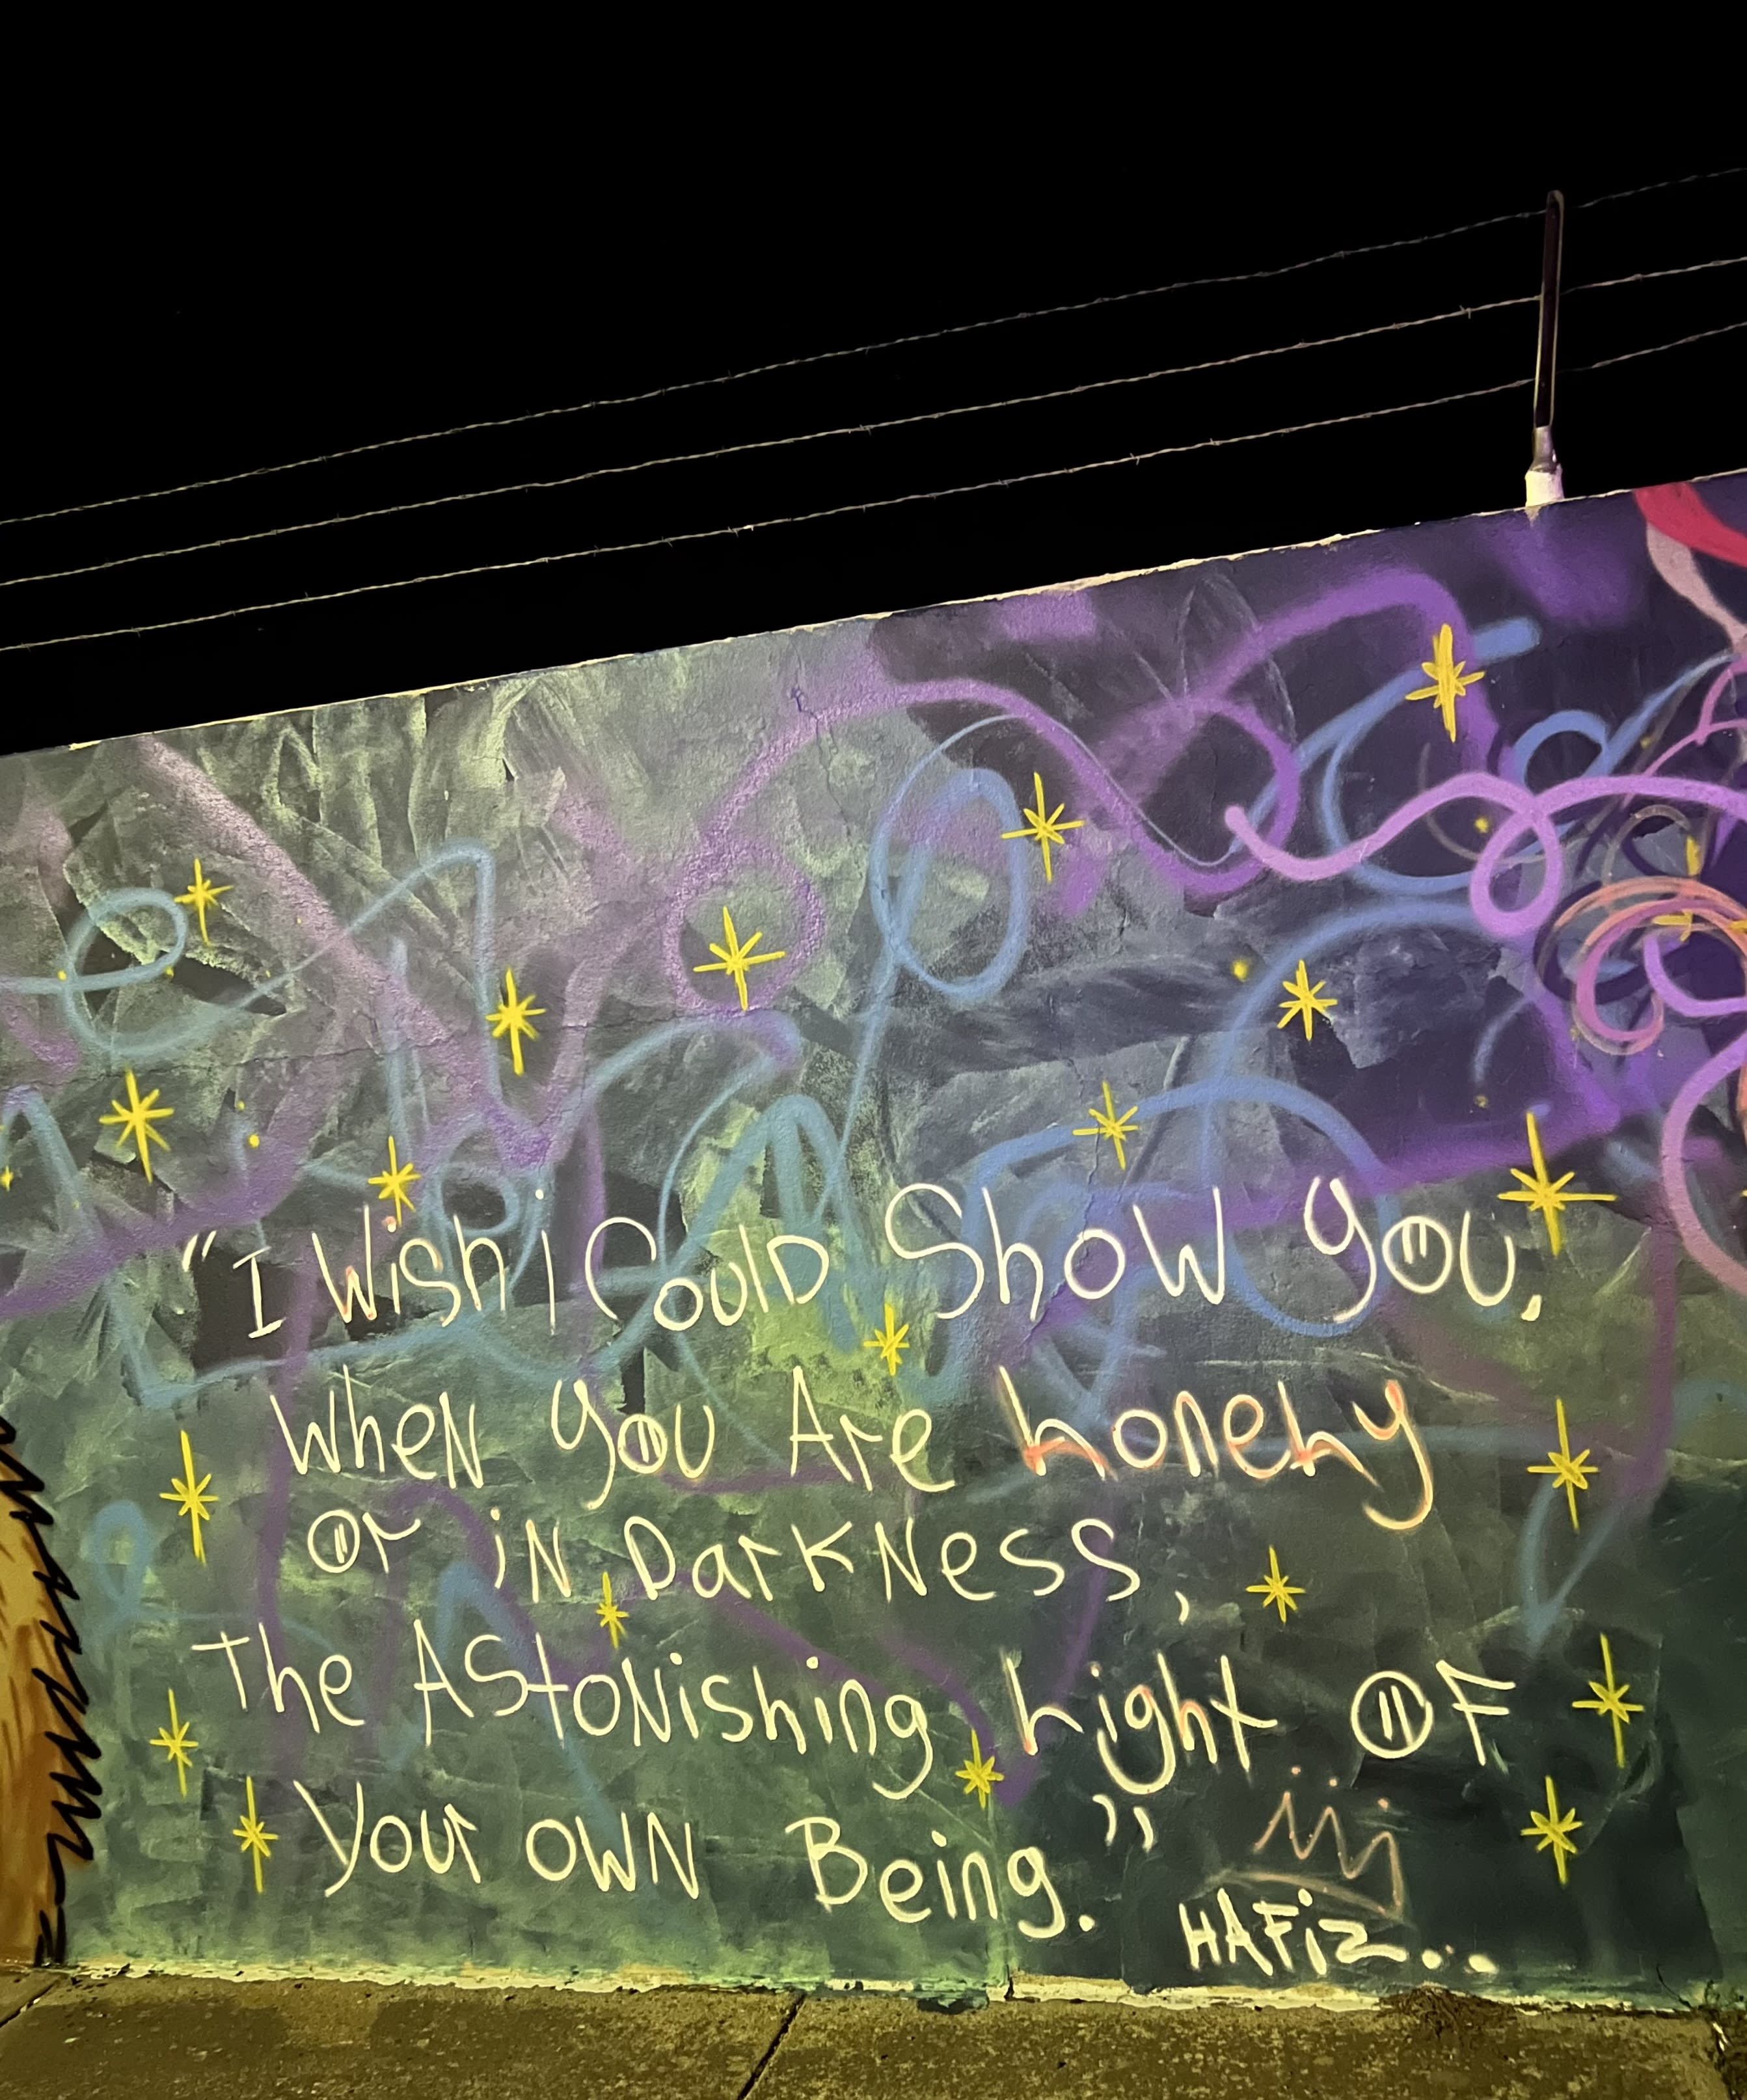 "I Wish i Could Show You,
When You Are Lonely
Or in Darkness,
The Astonishing Light Of
Your Own Being."
HAFiz...